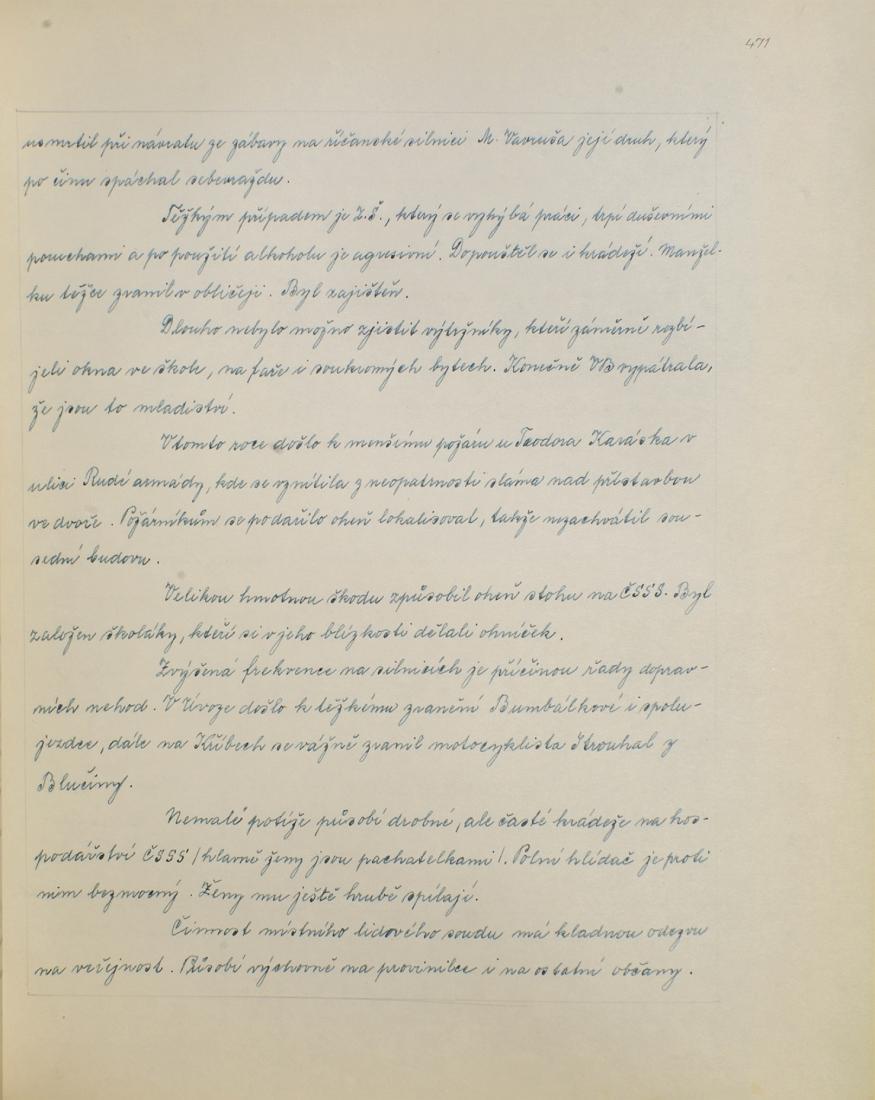 471
usmrtil při návratu ze zábavy na říčanské silnici M. Vavruša její druh, který
po činu spáchal sebevraždu.
Těžkým případem je Z.Š., který se vyhýbá práci, trpí duševními
poruchami a po použití alkoholu je agresivní. Dopouštěl se i krádeží. Manžel-
ku těžce zranil v obličeji. Byl zajištěn.
Dlouho nebylo možno zjistit výtržníky, kteří záměrně rozbí-
jeli okna ve škole, na faře i soukromých bytech. Konečně VB vypátrala,
že jsou to mladiství.
V tomto roce došlo k menšímu požáru u Teodora Karáska v
ulici Rudé armády, kde se vznítila z neopatrnosti sláma nad přístavbou
ve dvoře. Požárníkům se podařilo oheň lokalisovat, takže nezachvátil sou-
sední budovu.
Velikou hmotnou škodu způsobil oheň stohu na ČSSS. Byl
založen školáky, kteří si v jeho blízkosti dělali ohníček.
Zvýšená frekvence na silnicích je příčinou řady doprav-
ních nehod. V Úvoze došlo k těžkému zranění Bumbálkové i spolu-
jezdce, dále na Křibech se vážně zranil motocyklista Strouhal z
Blučiny.
Nemalé potíže působí drobné, ale časté krádeže na hos-
podářství ČSSS /hlavně ženy jsou pachatelkami/. Polní hlídač je proti
nim bezmocný. Ženy mu ještě hrubě spílají.
Činnost místního lidového soudu má kladnou odezvu
na veřejnost. Působí výchovně na provinilce i na ostatní občany.